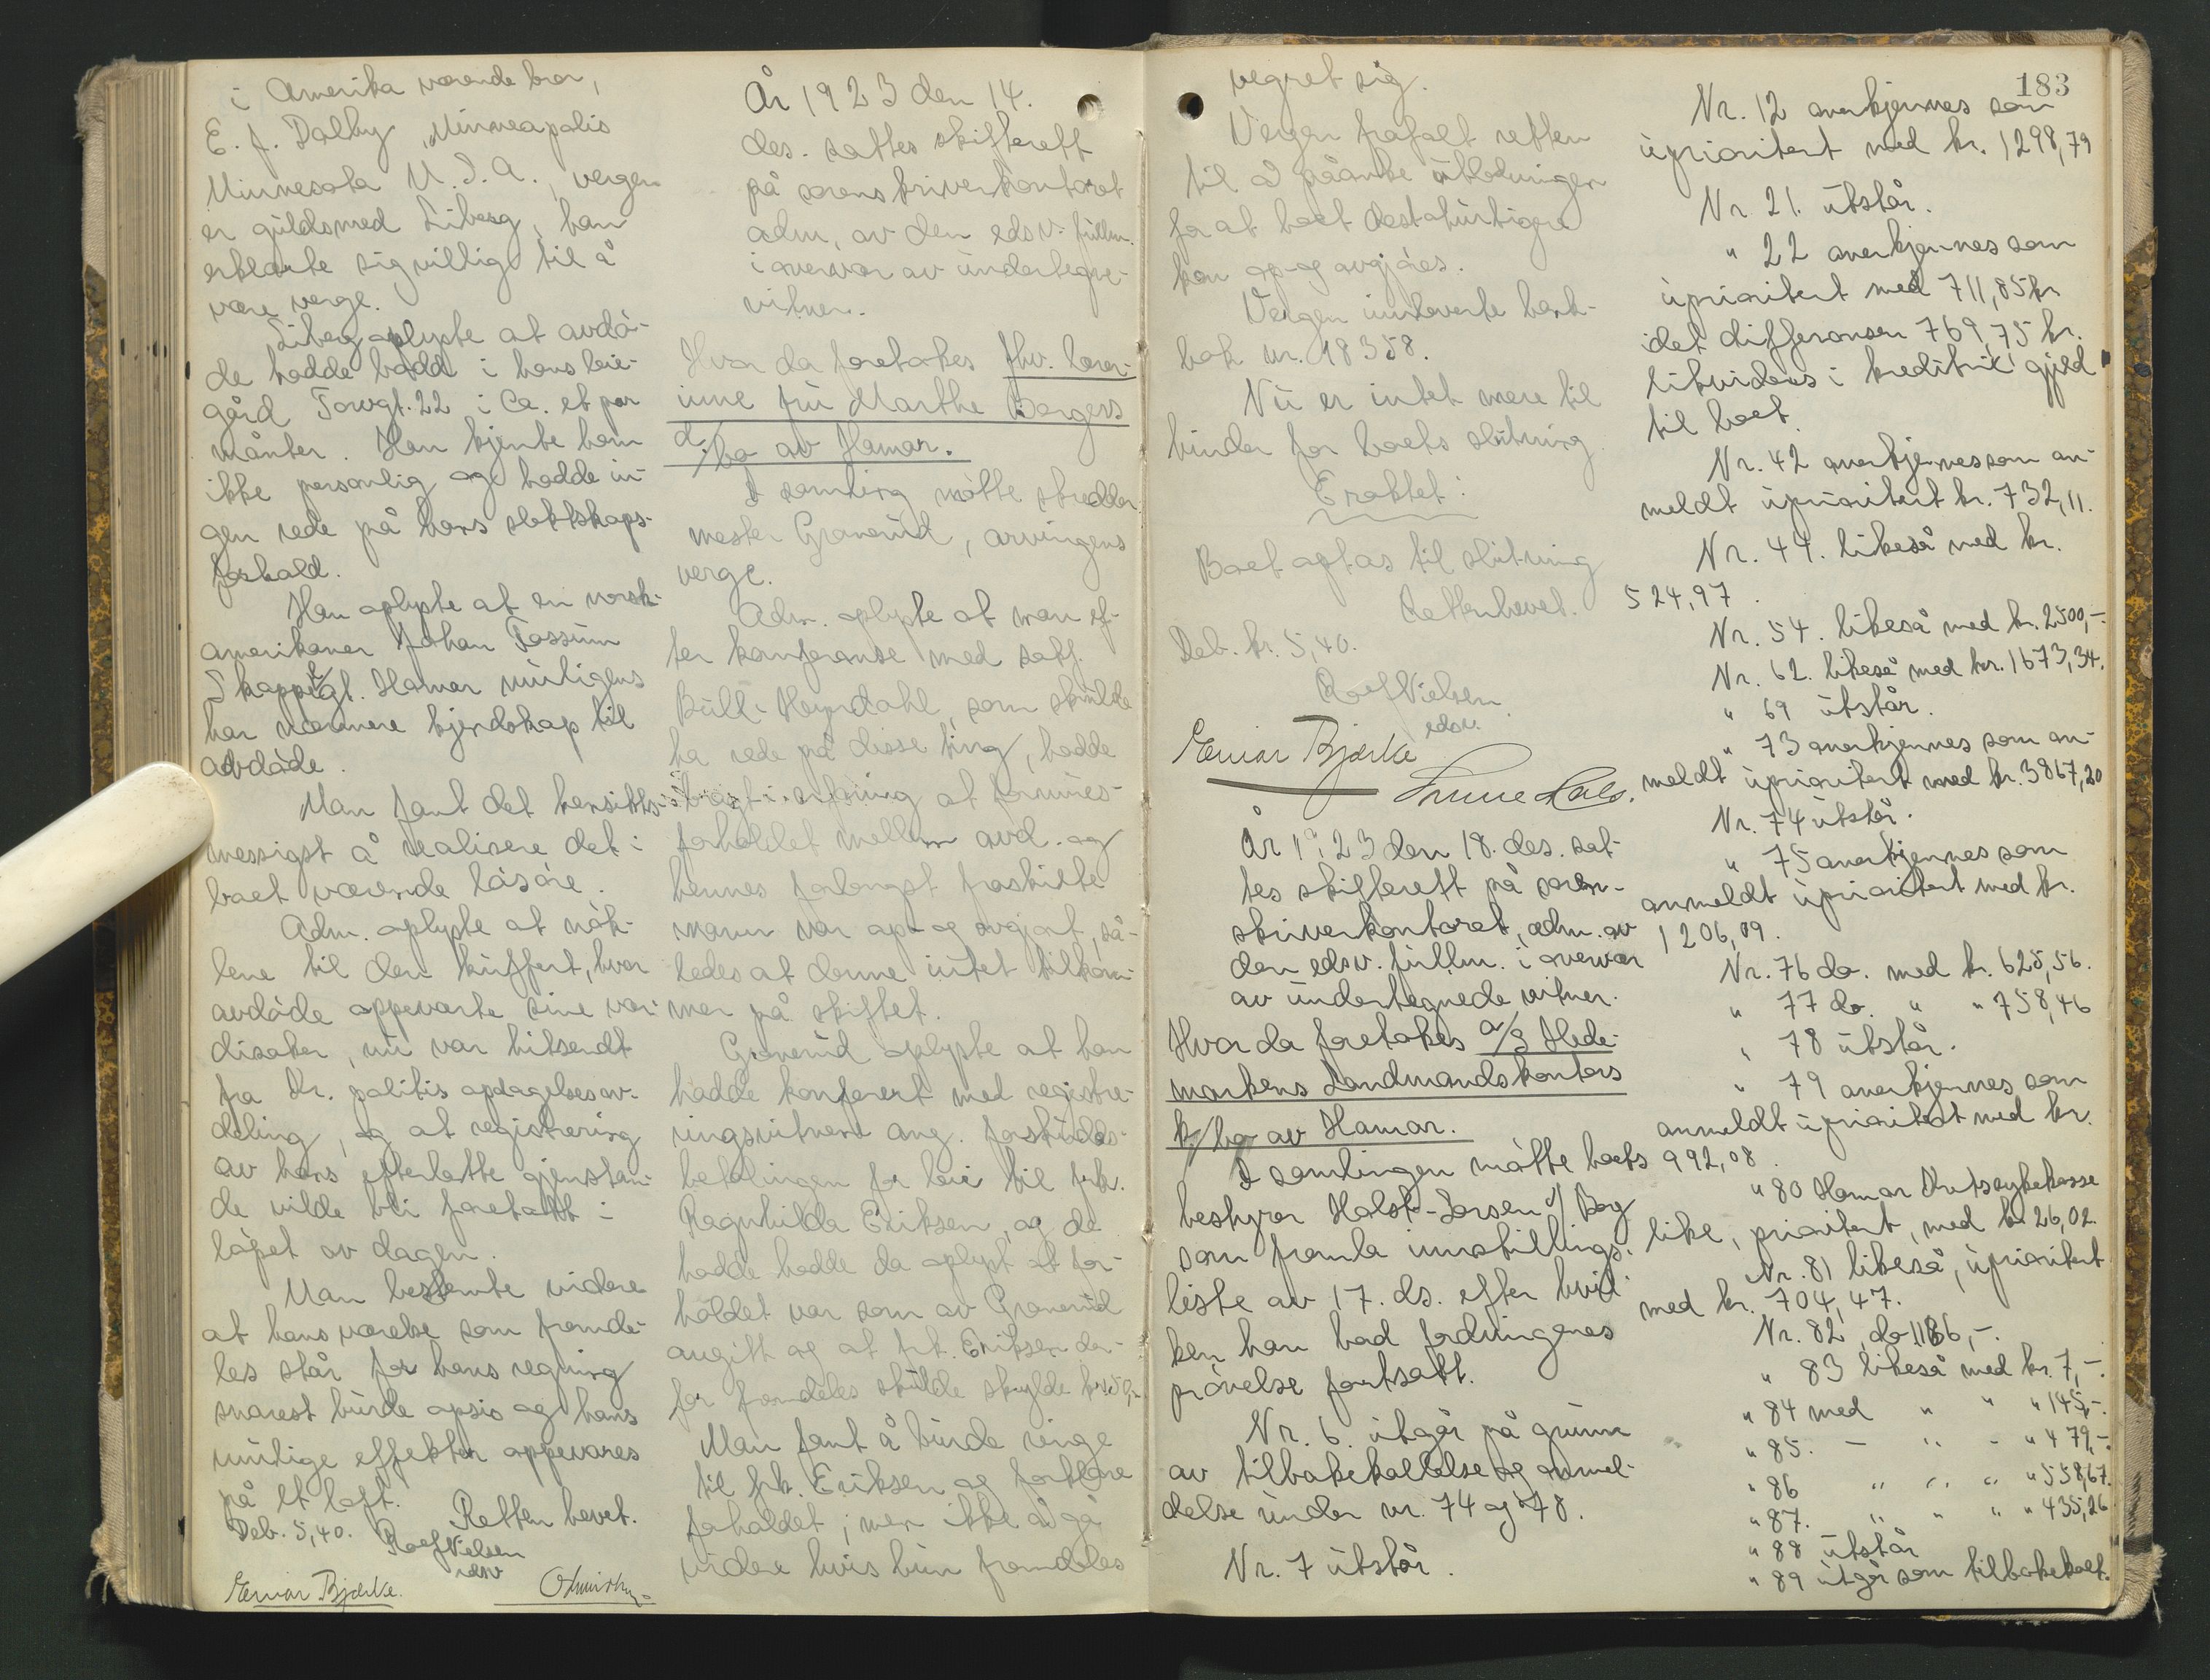 i Amerika værende bror,
E. J. Dalby, Minneapolis
Minnesota U. S. A., vergen
er guldsmed Liberg, han
erklærte sig villig til å
være verge.
Liberg oplyste at avdø-
de hadde bodd i hans leie-
gård Torvgt. 22 i ca. et par
månter. Han kjente ham
ikke personlig og hadde in-
gen rede på hans slektskaps-
forhold.
Han oplyste at en norsk-
amerikaner Johan Fossum
gt. Hamar muligens
har nærmere kjendskap til
avdøde.
Man fant det hensikts-
messigst å realisere det i
boet værende løsøre.
Adm. oplyste at nøk-
lene til den kuffert, hvor
avdøde oppevarte sine ver-
disaker, nu var hitsendt
fra Kr. politis opdagelsesav-
deling, og at registrering
av hans efterlatte gjenstan-
de vilde bli foretatt i
løpet av dagen.
Man bestemte videre
at hans værelse som fremde-
les står for hans regning
snarest burde opsies og hans
mulige effekter oppevares
på et loft.
Retten hevet.
Deb. 5,40.
Roef Nielsen
edsv
Einar Bjerke.
År 1923 den 14.
des. sattes skifterett
på sorenskriverkontoret
adm. av den edsv. fullm.
i overvær av undertegne-
vitner.
Hvor da foretokes fhv. lærer-
inne fru Marthe Borgers
d/bo av Hamar.
I samling møtte skredder-
mester Granerud, arvingens
verge.
Adm. oplyste at man ef-
ter konferanse med sakf.
Bull-Heyerdahl, som skulde
ha rede på disse ting, hadde
bragt i erfaring at formues-
forholdet mellem avd. og
hennes forlengst fraskilte
mann var opt og avgjort, så-
ledes at denne intet tilkom-
mer på skiftet.
Granerud oplyste at han
hadde konferert med registre-
ringsvitnene ang. forskudds-
betalingen for leie til frk.
Ragnhilda Eriksen, og de
hadde hadde da oplyst at for-
holdet var som av Granerud
angitt og at frk. Eriksen der-
for fremdeles skulde skylde kr. 50,-
Man fant å burde ringe
til frk. Eriksen og forklare
forholdet; men ikke å gå
videre hvis hun fremdeles
183
vegret sig.
Vergen frafalt retten
til å påanke utlodningen
for at boet desto hurtigere
kan op- og avgjøres.
Vergen innleverte bank-
bok nr. 18358.
Nu er intet mere til
hinder for boets slutning
Eraktet:
Boet optas til slutning
Retten hevet.
Deb. kr. 5,40.
Roef Nielsen
edsv.
Einar Bjerke
År 1923 den 18. des. sat-
tes skifterett på soren-
skriverkontoret, adm. av
den edsv. fullm. i overvær
av undertegnede vitner.
Hvor da foretokes a/s Hede-
markens Landmandskontors
k/bo av Hamar.
I samlingen møtte boets
bestyrer Holst-Larsen v/ Berg
som fremla innstillings-
liste av 17. ds. efter hvil-
ken han bad fordringenes
prøvelse fortsatt.
Nr. 6. utgår på grunn
av tilbakekallelse og anmel-
delse under nr. 74 og 78.
Nr. 7 utstår.
Nr. 12 anerkjennes som
uprioritert med kr. 1298,79
Nr. 21. utstår.
" 22 anerkjennes som
uprioritert med 711,85 kr
idet differansen 769,75 kr.
likvideres i kreditrix' gjeld
til boet.
Nr. 42 anerkjennes som an-
meldt uprioritert kr. 732,11.
Nr. 44. likeså med kr.
524,97.
Nr. 54. likeså med kr. 2500,-.
Nr. 62. likeså med kr. 1673,34.
" 69 utstår.
" 73 anerkjennes som an-
meldt uprioritert med kr. 3867,20
Nr. 74 utstår.
" 75 anerkjennes som
anmeldt uprioritert med kr.
1206,09.
Nr. 76 do. med kr. 625,56.
" 77 do. " " 758,46
" 78 utstår.
" 79 anerkjennes som
anmeldt uprioritert med kr.
992,08.
" 80 Hamar Kretssykekasse
like, prioritert, med kr. 26,02.
Nr. 81 likeså, uprioritert
med kr. 704,47.
Nr. 82 do 1186,-.
" 83 likeså med kr. 7,-.
" 84 med " " " 145,-.
" 85. - " - " 479,-.
" 86 " " " " 558,67.
" 87. " " " " 435,26
" 88 utstår
" 89 utgår som tilbakekalt.